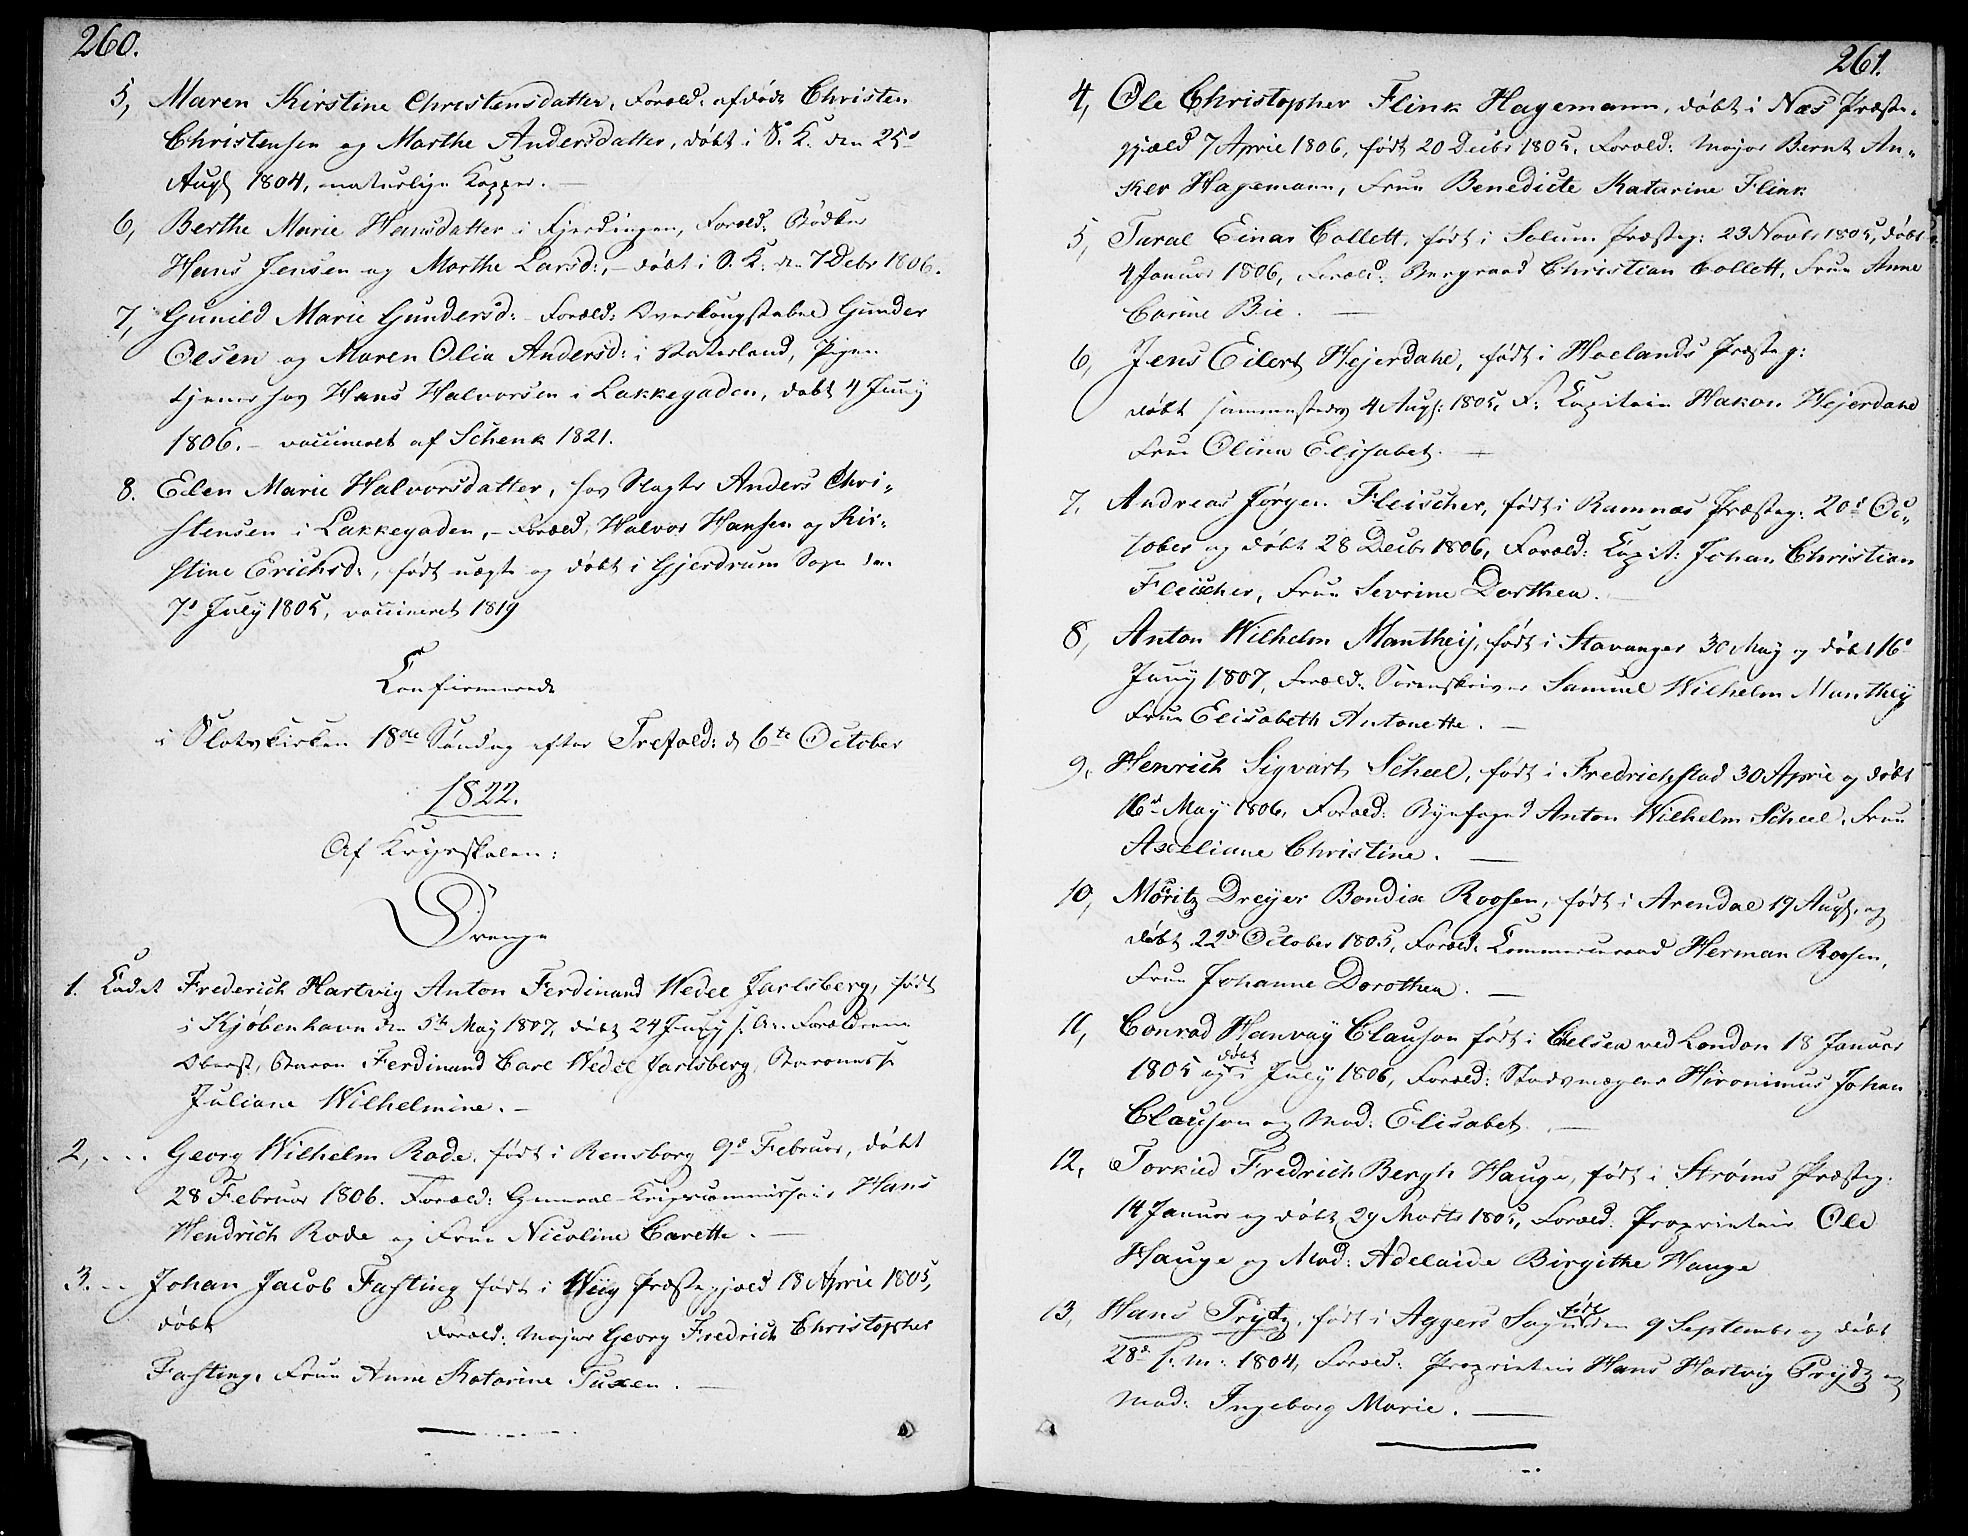 260.
5, Maren Kirstine Christensdatter, Foræld. afdøde Christen
Christensen og Marthe Andersdatter, døbt i S. K. den 25d
Augs 1804, naturlige Kopper. —
6, Berthe Marie Hansdatter i Fjerdingen, Foræld: Bødker
Hans Jensen og Marthe Larsd:, – døbt i O. K. den 7 Debr 1806.
7, Gunild Marie Gundersd: Foræld: Gunder
Olsen og Maren Olia Andersd: i Vaterland, Pigen
tjener hos Hans Halvorsen i Lakkegaden, døbt 4 Juny
1806. – vaccineret af Schenk 1821.
8. Elen Marie Halvorsdatter, hos Slagter Anders Chri-
stensen i Lakkegaden, – Foræld. Halvor Hansen og Kir-
stine Erichsd:, født uægte og døbt i Gjerdrum Sogn den
7d July 1805, vaccineret 1819
Confirmerede
i Slotskirken 18de Søndag efter Trefold: d 6te October
1822.
Af Krigsskolen:
Drenge
1. Cadet Frederich Hartvig Anton Ferdinand Wedel Jarlsberg, født
i Kjøbenhavn den 5te May 1807, døbt 24 Juny s. A. Forældrene
Oberst, Baron Ferdinand Carl Wedel Jarlsberg, Baronesse
Juliane Wilhelmine. –
2, . . . Georg Wilhelm Rode, født i Rensborg 9d Februar, døbt
28 Februar 1806. Foræld: General-Krigscommissair Hans
Hendrich Rode og Frue Nicoline Carette. —
3. . . Johan Jacob Fasting født i Wiig Præstegjæld 18 April 1805,
døbt Foræld: Major Georg Fredrich Christopher
Fasting, Frue Anne Katarine Tuxen. —
261.
4, Ole Christopher Flink Hagemann, døbt i Næs Præste-
gjæld 7 April 1806, født 20 Decbr 1805, Foræld: Major Bernt An-
ker Hagemann, Frue Benedicte Katarine Flink
5, Tural Einar Collett, født i Solum Præsteg: 23 Novbr 1805, døbt
4 Januar 1806, Foræld: Bergraad Christian Collett, Frue Anne
Carine Bie. —
6, Jens Eilert Hejerdahl, født i Hølands Præsteg:
døbt sammesteds 4 Augs: 1805, F: Capitain Hakon Hejerdahl
Frue Olina Elisabet. —
7, Andreas Jørgen Fleischer, født i Ramnæs Præsteg: 20d Oc-
tober og døbt 28 Decbr 1806, Foræld: Capit: Johan Christian
Fleischer, Frue Sevrine Dorthea. —
8, Anton Wilhelm Manthey, født i Stavanger 30 May og døbt 16d
Juny 1807, Foræld: Sorenskriver Samuel Wilhelm Manthey
Frue Elisabeth Antonette. —
9, Henrich Sigvart Scheel, født i Fredrichstad 30 April og døbt
16d May 1806, Foræld: Byefoged Anton Wilhelm Scheel, Frue
Axeliane Christine. —
10, Moritz Dreyer Bendix Roosen, født i Arendal 19 Augs. og
døbt 22d October 1805, Foræld: Commerceraad Herman Roosen,
Frue Johanne Dorothea. —
11, Conrad Hanvay Clauson født i Chelsea ved London 18 Januar
1805 og døbt i July 1806, Foræld: Stadsmægler Hironimus Johan
Clauson og Mad: Elisabet. —
12, Torkild Fredrich Bergh Hauge, født i Strøms Præsteg:
14 Januar og døbt 29 Marts 1805, Foræld. Proprietair Ole
Hauge og Mad: Adelaide Birgithe Hauge
13, Hans Prytz, født i Aggers Sogn født den 9 Septembr og døbt
28d s: M: 1804, Foræld: Proprietair Hans Hartvig Prydz og
Mad: Ingeborg Marie. —